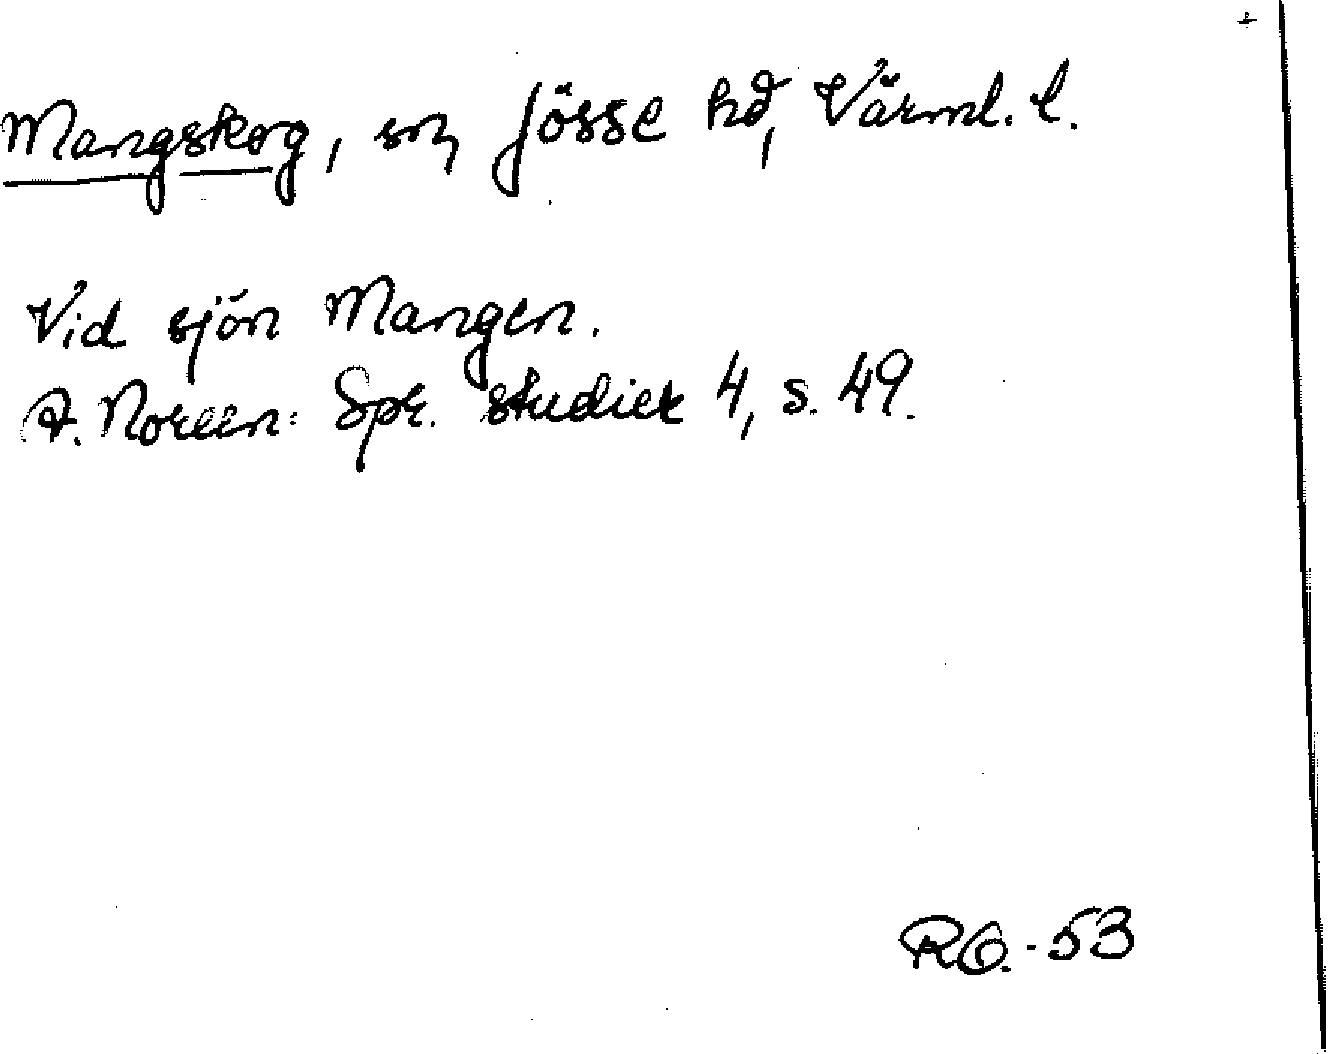 Mangskog, sn, Jösse hd, Värml. l.
Vid sjön Mangen.
A. Noreen: Spr. studier 4, s. 49.
RO.-53